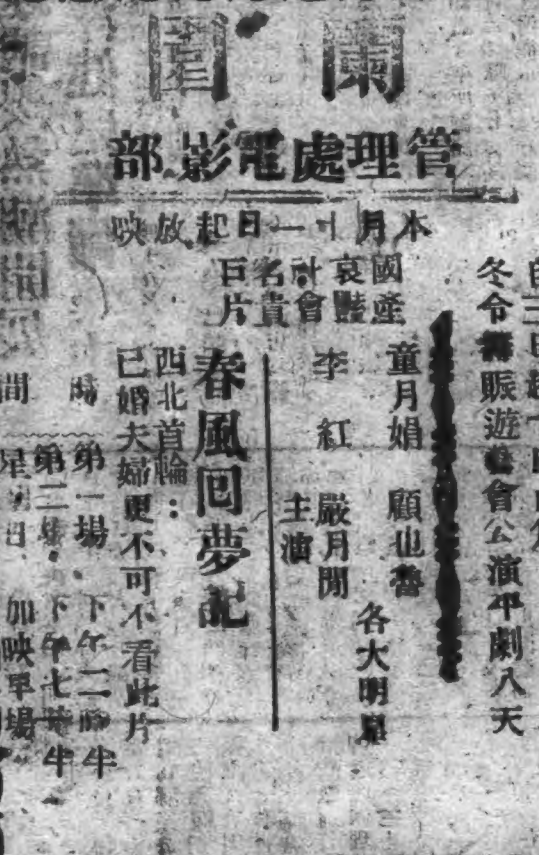 蘭園
管理處電影部
本月十一日起放映
冬令籌賑遊藝會公演平劇八天
國產
哀艷
社會
名貴
巨片
童月娟 顧也魯
李紅 嚴月閒
各大明星
主演
春風回夢記
西北首輪：
已婚夫婦更不可不看此片
時間
第一場 下午二時半
第二場 下午七時半
星期日 加映早場